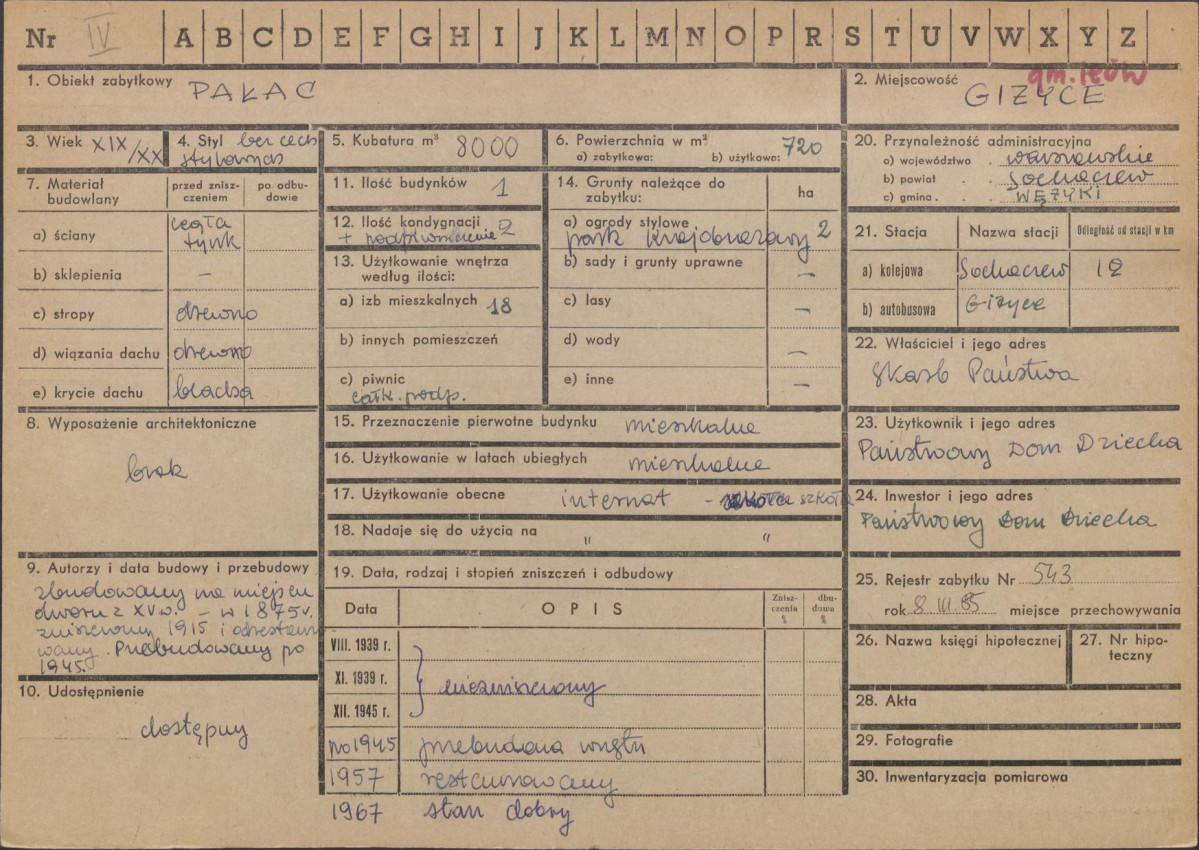 Nr IV A B C D E F G H I J K L M N O P R S T U V W X Y Z
1. Obiekt zabytkowy PAŁAC
2. Miejscowość gm. IŁÓW
GIŻYCE
3. Wiek XIX/XX
4. Styl bez cech
stylowych
5. Kubatura m³ 8000
6. Powierzchnia w m²
a) zabytkowa: b) użytkowa: 720
7. Materiał budowlany
przed zniszczeniem
po odbudowie
a) ściany cegła
tynk
b) sklepienia –
c) stropy drewno
d) wiązania dachu drewno
e) krycie dachu blacha
8. Wyposażenie architektoniczne
brak
9. Autorzy i data budowy i przebudowy
zbudowany na miejscu
dworu z XV w. – w 1875 r.
zniszczony 1915 i odrestauro
wany. Przebudowany po
1945.
10. Udostępnienie
dostępny
11. Ilość budynków 1
12. Ilość kondygnacji 2
+ podpiwniczenie
13. Użytkowanie wnętrza
według ilości:
a) izb mieszkalnych 18
b) innych pomieszczeń
c) piwnic
całk. podp.
14. Grunty należące do
zabytku: ha
a) ogrody stylowe
park krajobrazowy 2
b) sady i grunty uprawne –
c) lasy –
d) wody –
e) inne –
15. Przeznaczenie pierwotne budynku mieszkalne
16. Użytkowanie w latach ubiegłych mieszkalne
17. Użytkowanie obecne internat – szkoła
18. Nadaje się do użycia na " "
19. Data, rodzaj i stopień zniszczeń i odbudowy
Data OPIS Zniszczenia % dbudowa %
VIII. 1939 r.
XI. 1939 r. } niezniszczony
XII. 1945 r.
po 1945 przebudowa wnętrz
1957 restaurowany
1967 stan dobry
20. Przynależność administracyjna
a) województwo . warszawskie
b) powiat . . Sochaczew
c) gmina . . WĘŻYKI
21. Stacja Nazwa stacji Odległość od stacji w km
a) kolejowa Sochaczew 12
b) autobusowa Giżyce
22. Właściciel i jego adres
Skarb Państwa
23. Użytkownik i jego adres
Państwowy Dom Dziecka
24. Inwestor i jego adres
Państwowy Dom Dziecka
25. Rejestr zabytku Nr 543
rok 8.III.85 miejsce przechowywania
26. Nazwa księgi hipotecznej
27. Nr hipoteczny
28. Akta
29. Fotografie
30. Inwentaryzacja pomiarowa